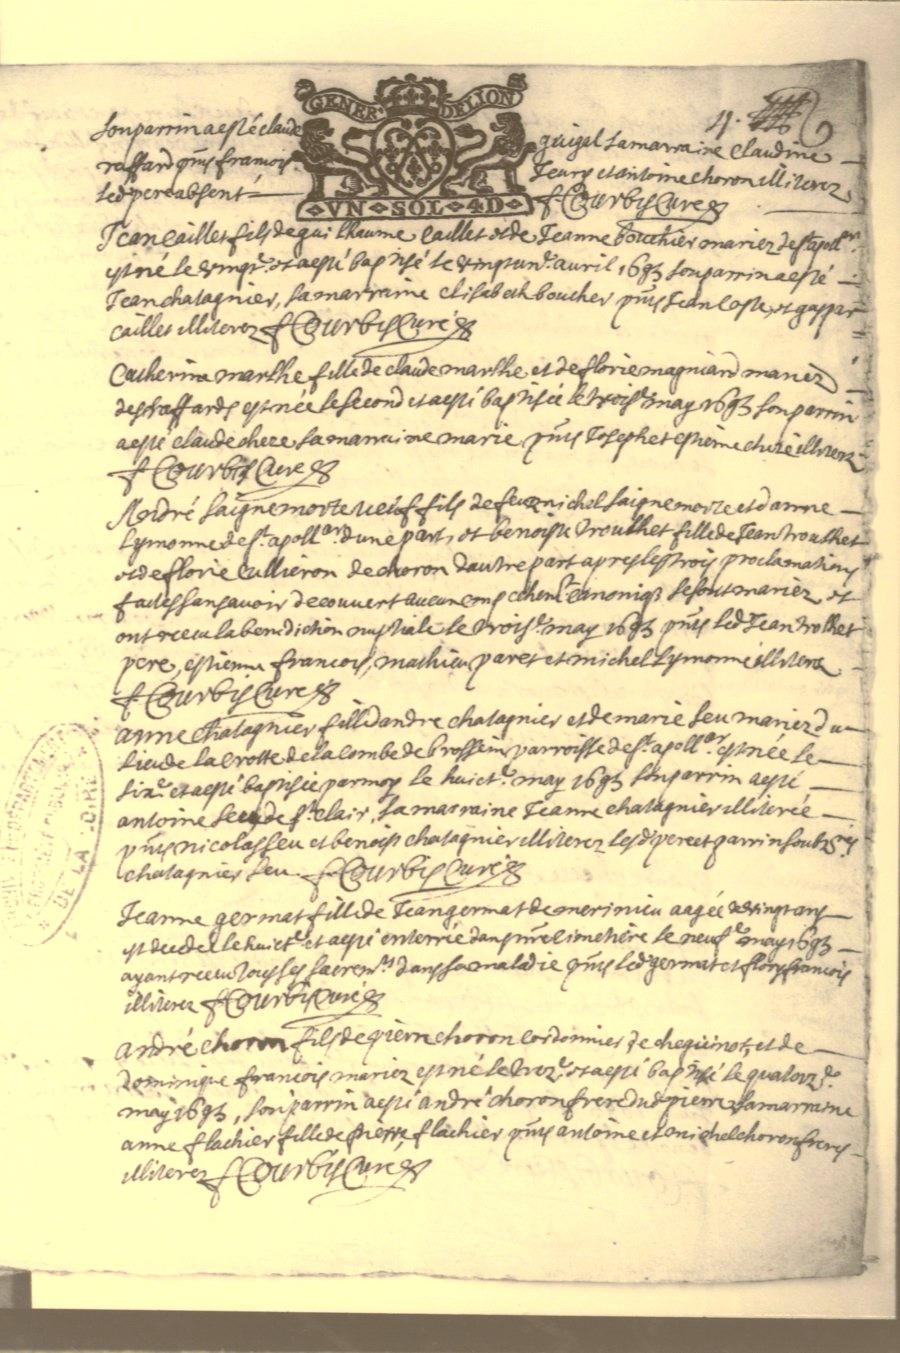 GENER. DELION
VN SOL 4D
son parrin a esté claude guigal la marraine claudine
raffard pn̄ts francois Teury et antoine choron illiterez
led pere absent f Courbis Curé
Jean Caillet fils de guilhaume Caillet et de Jeanne bouchier mariez de st apollre
est né le vingte et a esté baptisé le vingtune avril 1693 son parrin a esté
Jean chatagnier, la marraine elisabeth boucher pn̄ts Jean Coste, et gaspar
caillet illiterez f Courbis Curé
Catherine marthe fille de claude marthe et de florie magniard mariez
des raffards est née le second et a esté baptisée le troise may 1693 son parrin
a esté claude cheze la marraine marie pn̄ts Joseph et estienne illiterez
f Courbis Curé
André saignemorte veuf fils de feu michel saignemorte et d'anne
Lymonne de st apollard d'une part, et benoiste trouilhet fille de Jean trouilhet
et de florie Cullieron de choron d'autre part apres les trois proclamations
faites sans avoir decouvert aucun empechemt canonique se sont mariez et
ont receu la benediction nuptiale le troise may 1693 pn̄ts led Jean trolhet
pere, estienne francois, mathieu paret et michel Lymonne illiterez
f Courbis Curé
anne chatagnier fille d'andre chatagnier et de marie seu mariez du
lieu de la Crotte de la combe de brossein parroisse de st apollar est née le
sixe et a esté baptisée par moy le huicte may 1693 son parrin a esté
antoine seu de st clair, la marraine Jeanne chatagnier illiterée
pn̄ts nicolas seu et benoist chatagnier illiterez lesd pere et parrin soubznés
chatagnier seu f Courbis Curé
Jeanne germat fille de Jean germat de merinieu aagée de vingt ans
est decedée le huicte et a esté enterrée dans nre cimetiere le neufe may 1693
ayant receu tous les sacremts dans sa maladie pn̄ts led germat et flory francois
illiterez f Courbis Curé
André choron fils de pierre choron cordonnier de cheguinot, et de
Dominique francois mariez est né le treze et a esté baptisé le quatorze
may 1693, son parrin a esté andré choron frere dud pierre la marraine
anne flachier fille de pierre flachier pn̄ts antoine et michel choron freres
illiterez f Courbis Curé
DE LA LOIRE